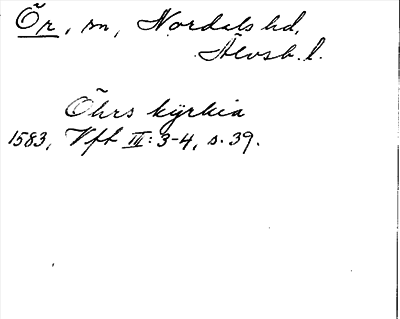 Õr, sn, Nordals hd,
Älvsb. l.
Õhrs kÿrkia
1583, Vft III: 3-4, s. 39.